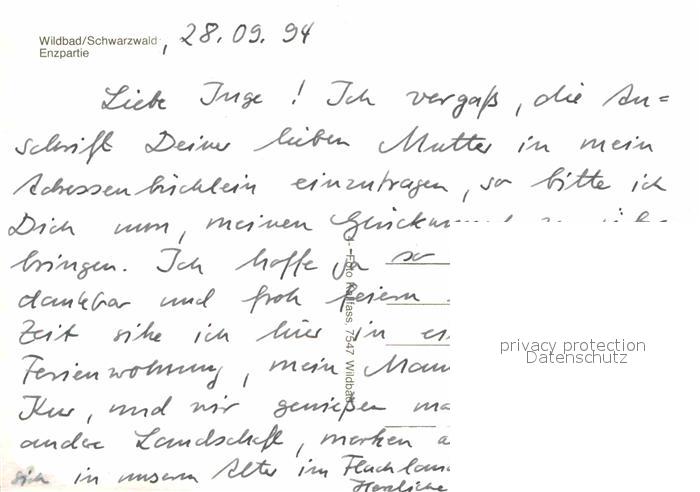 Wildbad/Schwarzwald, 28.09.94
Enzpartie
Liebe Inge! Ich vergaß, die An=
schrift Deiner lieben Mutter in mein
Adressenbüchlein einzutragen, so bitte ich
Dich nun, meinen
bringen. Ich hoffe so
dankbar und froh feiern
Zeit sitze ich hier in
Ferienwohnung, mein
Kur, und wir genießen
andere Landschaft, merken
sich in unserm Alter im
Herzliche
Foto Kallfass, 7547 Wildbad
privacy protection
Datenschutz